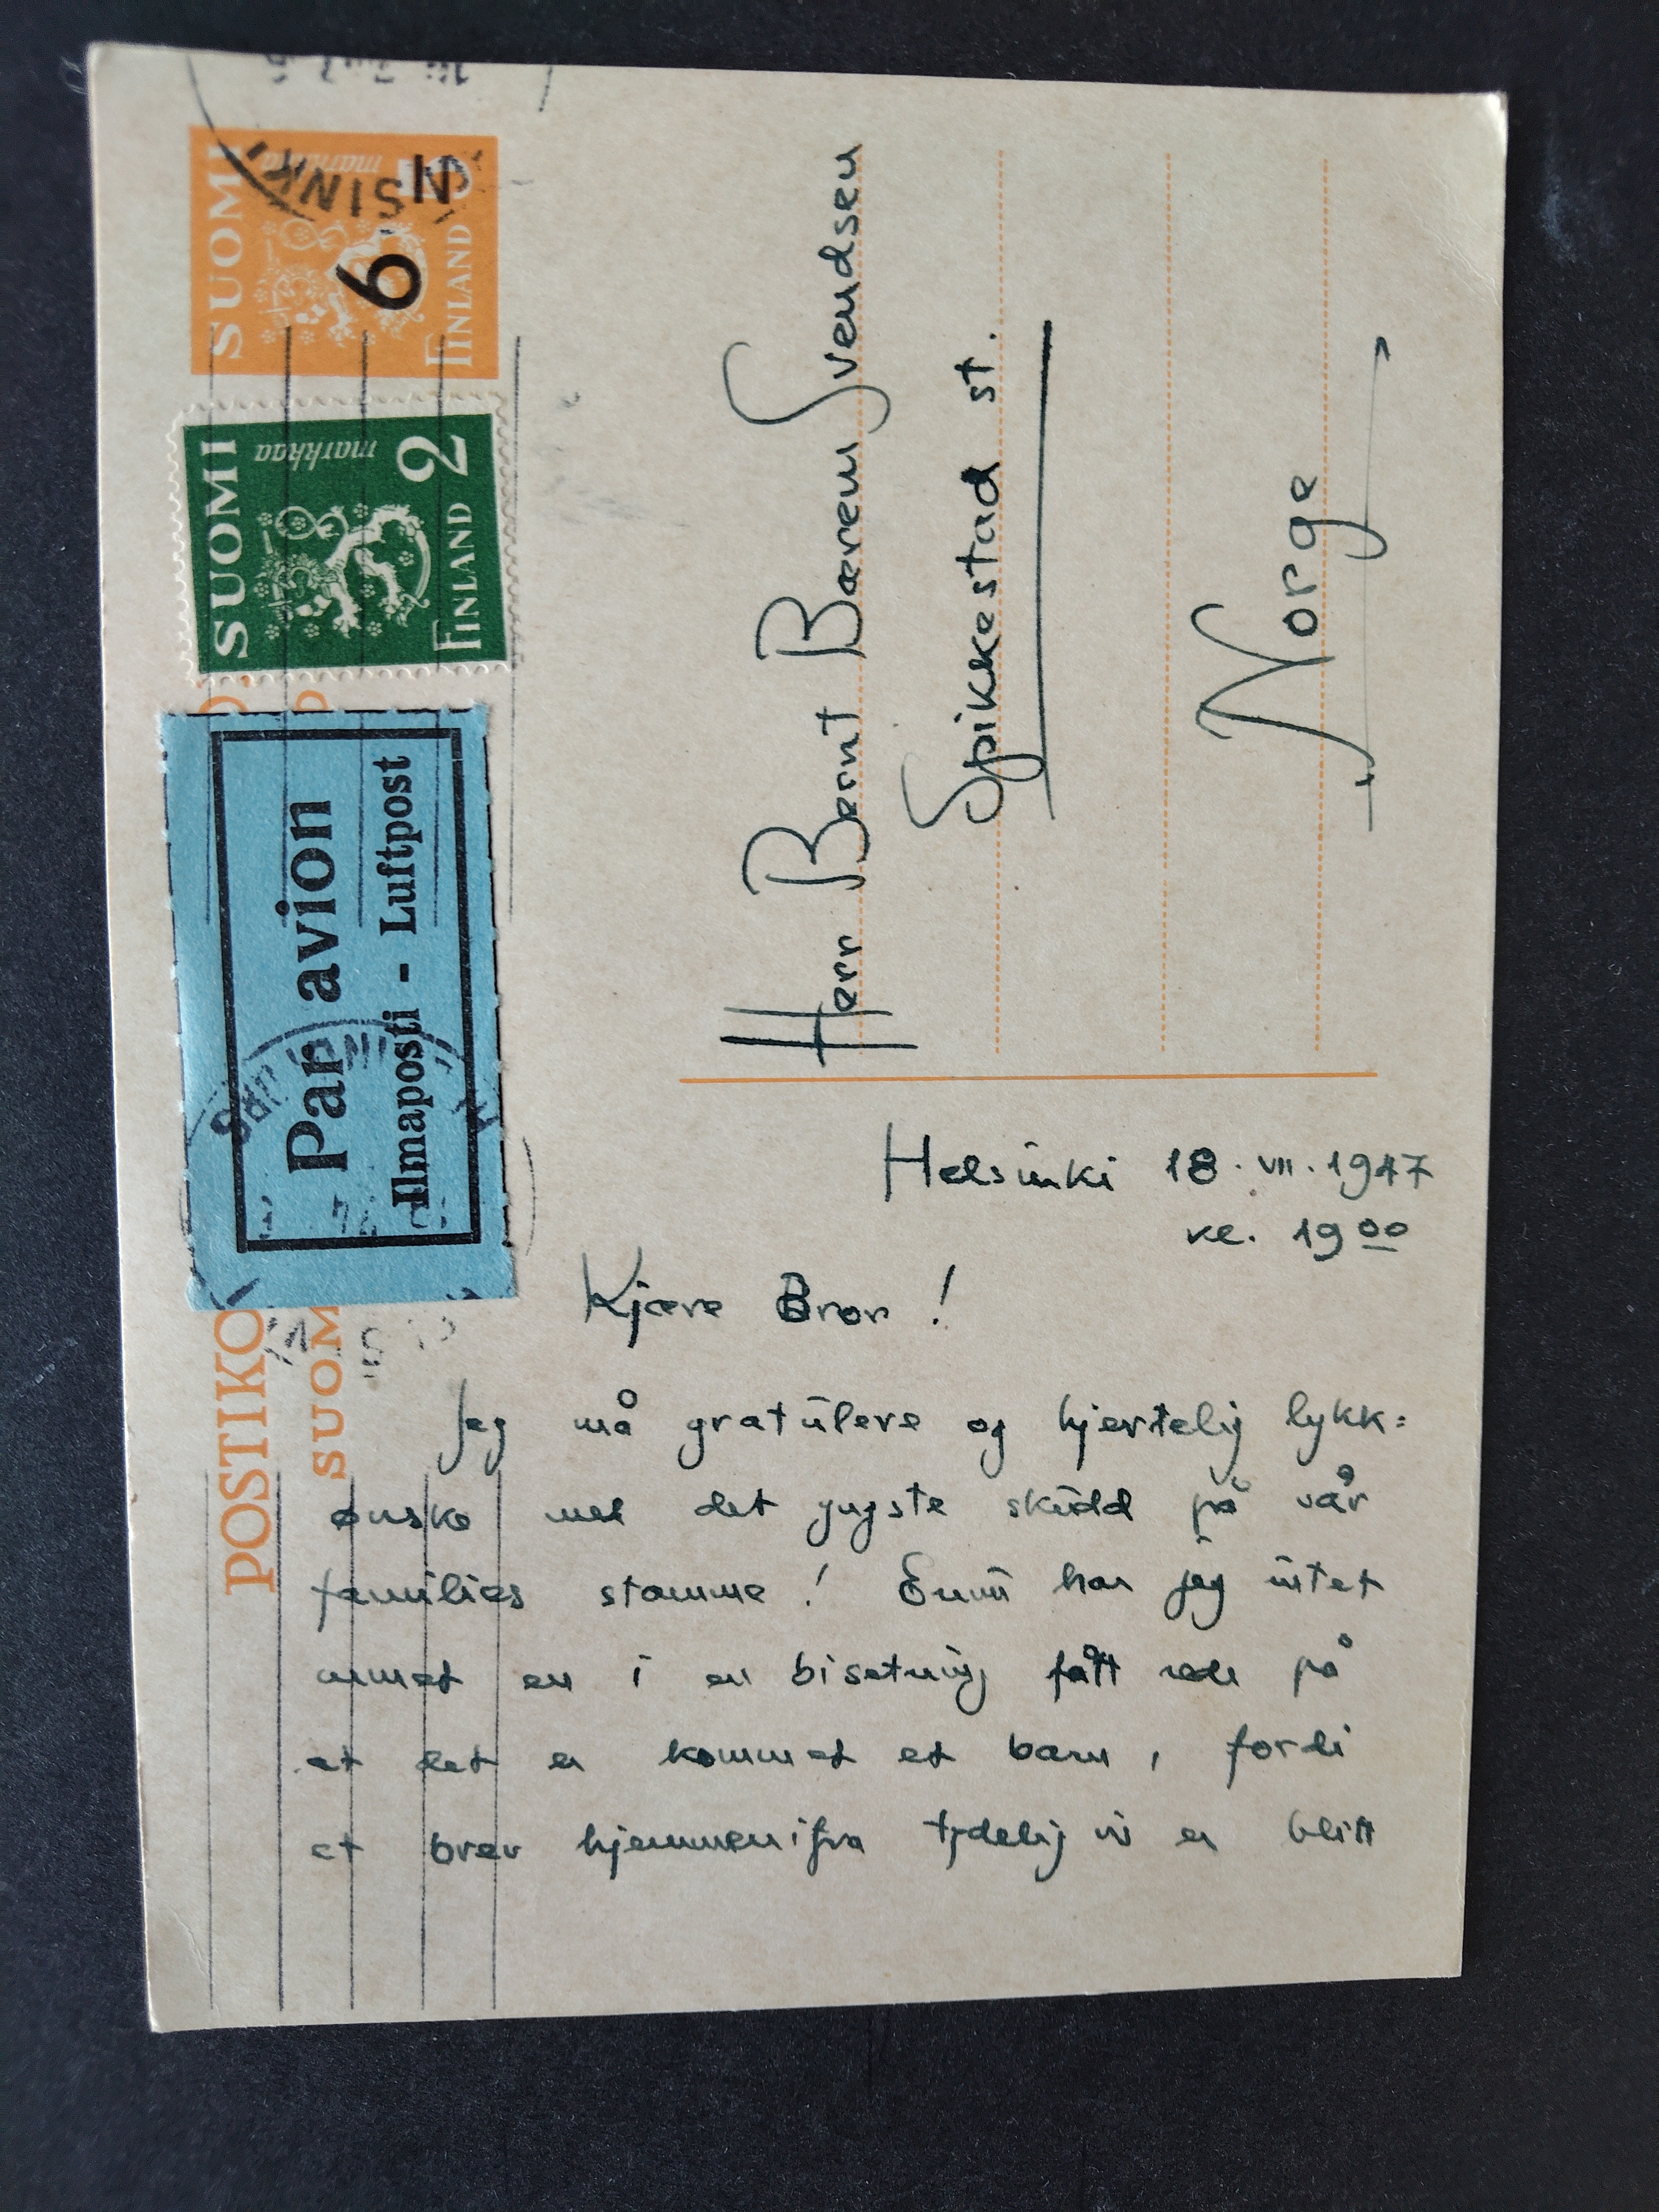 POSTIKO
SUOM
SUOMI
markkaa
5
6
N
FINLAND
SUOMI
markkaa
2
FINLAND
Par avion
Ilmaposti - Luftpost
Herr Bernt Bærem Svendsen
Spikkestad st.
Norge
Helsinki 18. VII. 1947
kl. 19 00
Kjære Bror!
Jeg må gratulere og hjertelig lykk=
ønske med det yngste skudd på vår
families stamme! Ennu har jeg intet
annet en i en bisetning fått rede på
at det er kommet et barn, fordi
et brev hjemmenifra tydelig vis er blitt